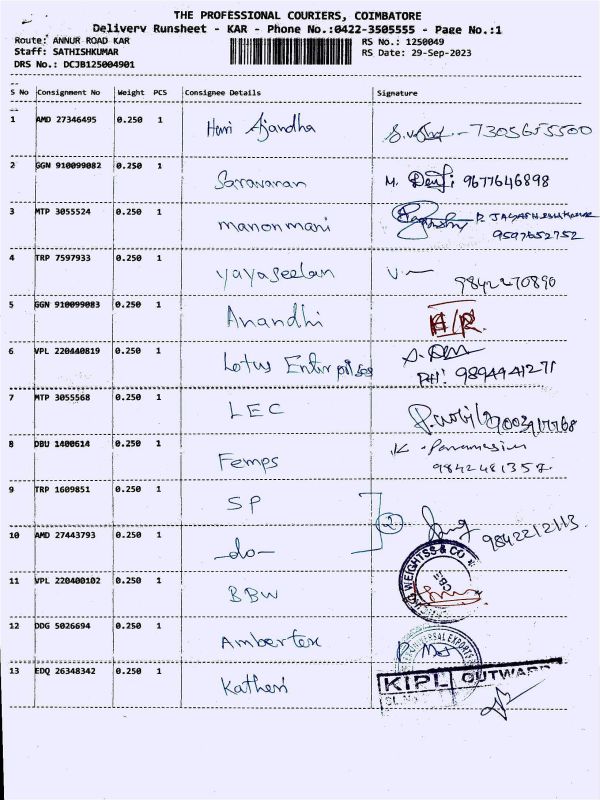 THE PROFESSIONAL COURIERS, COIMBATORE
Delivery Runsheet - KAR - Phone No.:0422-3505555 - Page No.:1
Route: ANNUR ROAD KAR RS No.: 1250049
Staff: SATHISHKUMAR RS Date: 29-Sep-2023
DRS No.: DCJB125004901
S No Consignment No Weight PCS Consignee Details Signature
1 AMD 27346495 0.250 1 Hari Ajandha 7305655500
2 GGN 910099082 0.250 1 Saravanan M. Devi 9677646898
3 MTP 3055524 0.250 1 manonmani
9597652752
4 TRP 7597933 0.250 1 yayaseelan V
9842270890
5 GGN 910099083 0.250 1 Anandhi
6 VPL 220440819 0.250 1 Lotus Enterprises
PH: 9894441271
7 MTP 3055568 0.250 1 LEC
8 DBU 1400614 0.250 1 Femps
9 TRP 1609851 0.250 1 SP
2
10 AMD 27443793 0.250 1 -do- 9842212113
WEIGHTSS & CO
CBE
11 VPL 220400102 0.250 1 BBW
12 DDG 5026694 0.250 1 Ambertex
UNIVERSAL EXPORTS
13 EDQ 26348342 0.250 1 Katheri
KIPL OUTWARD